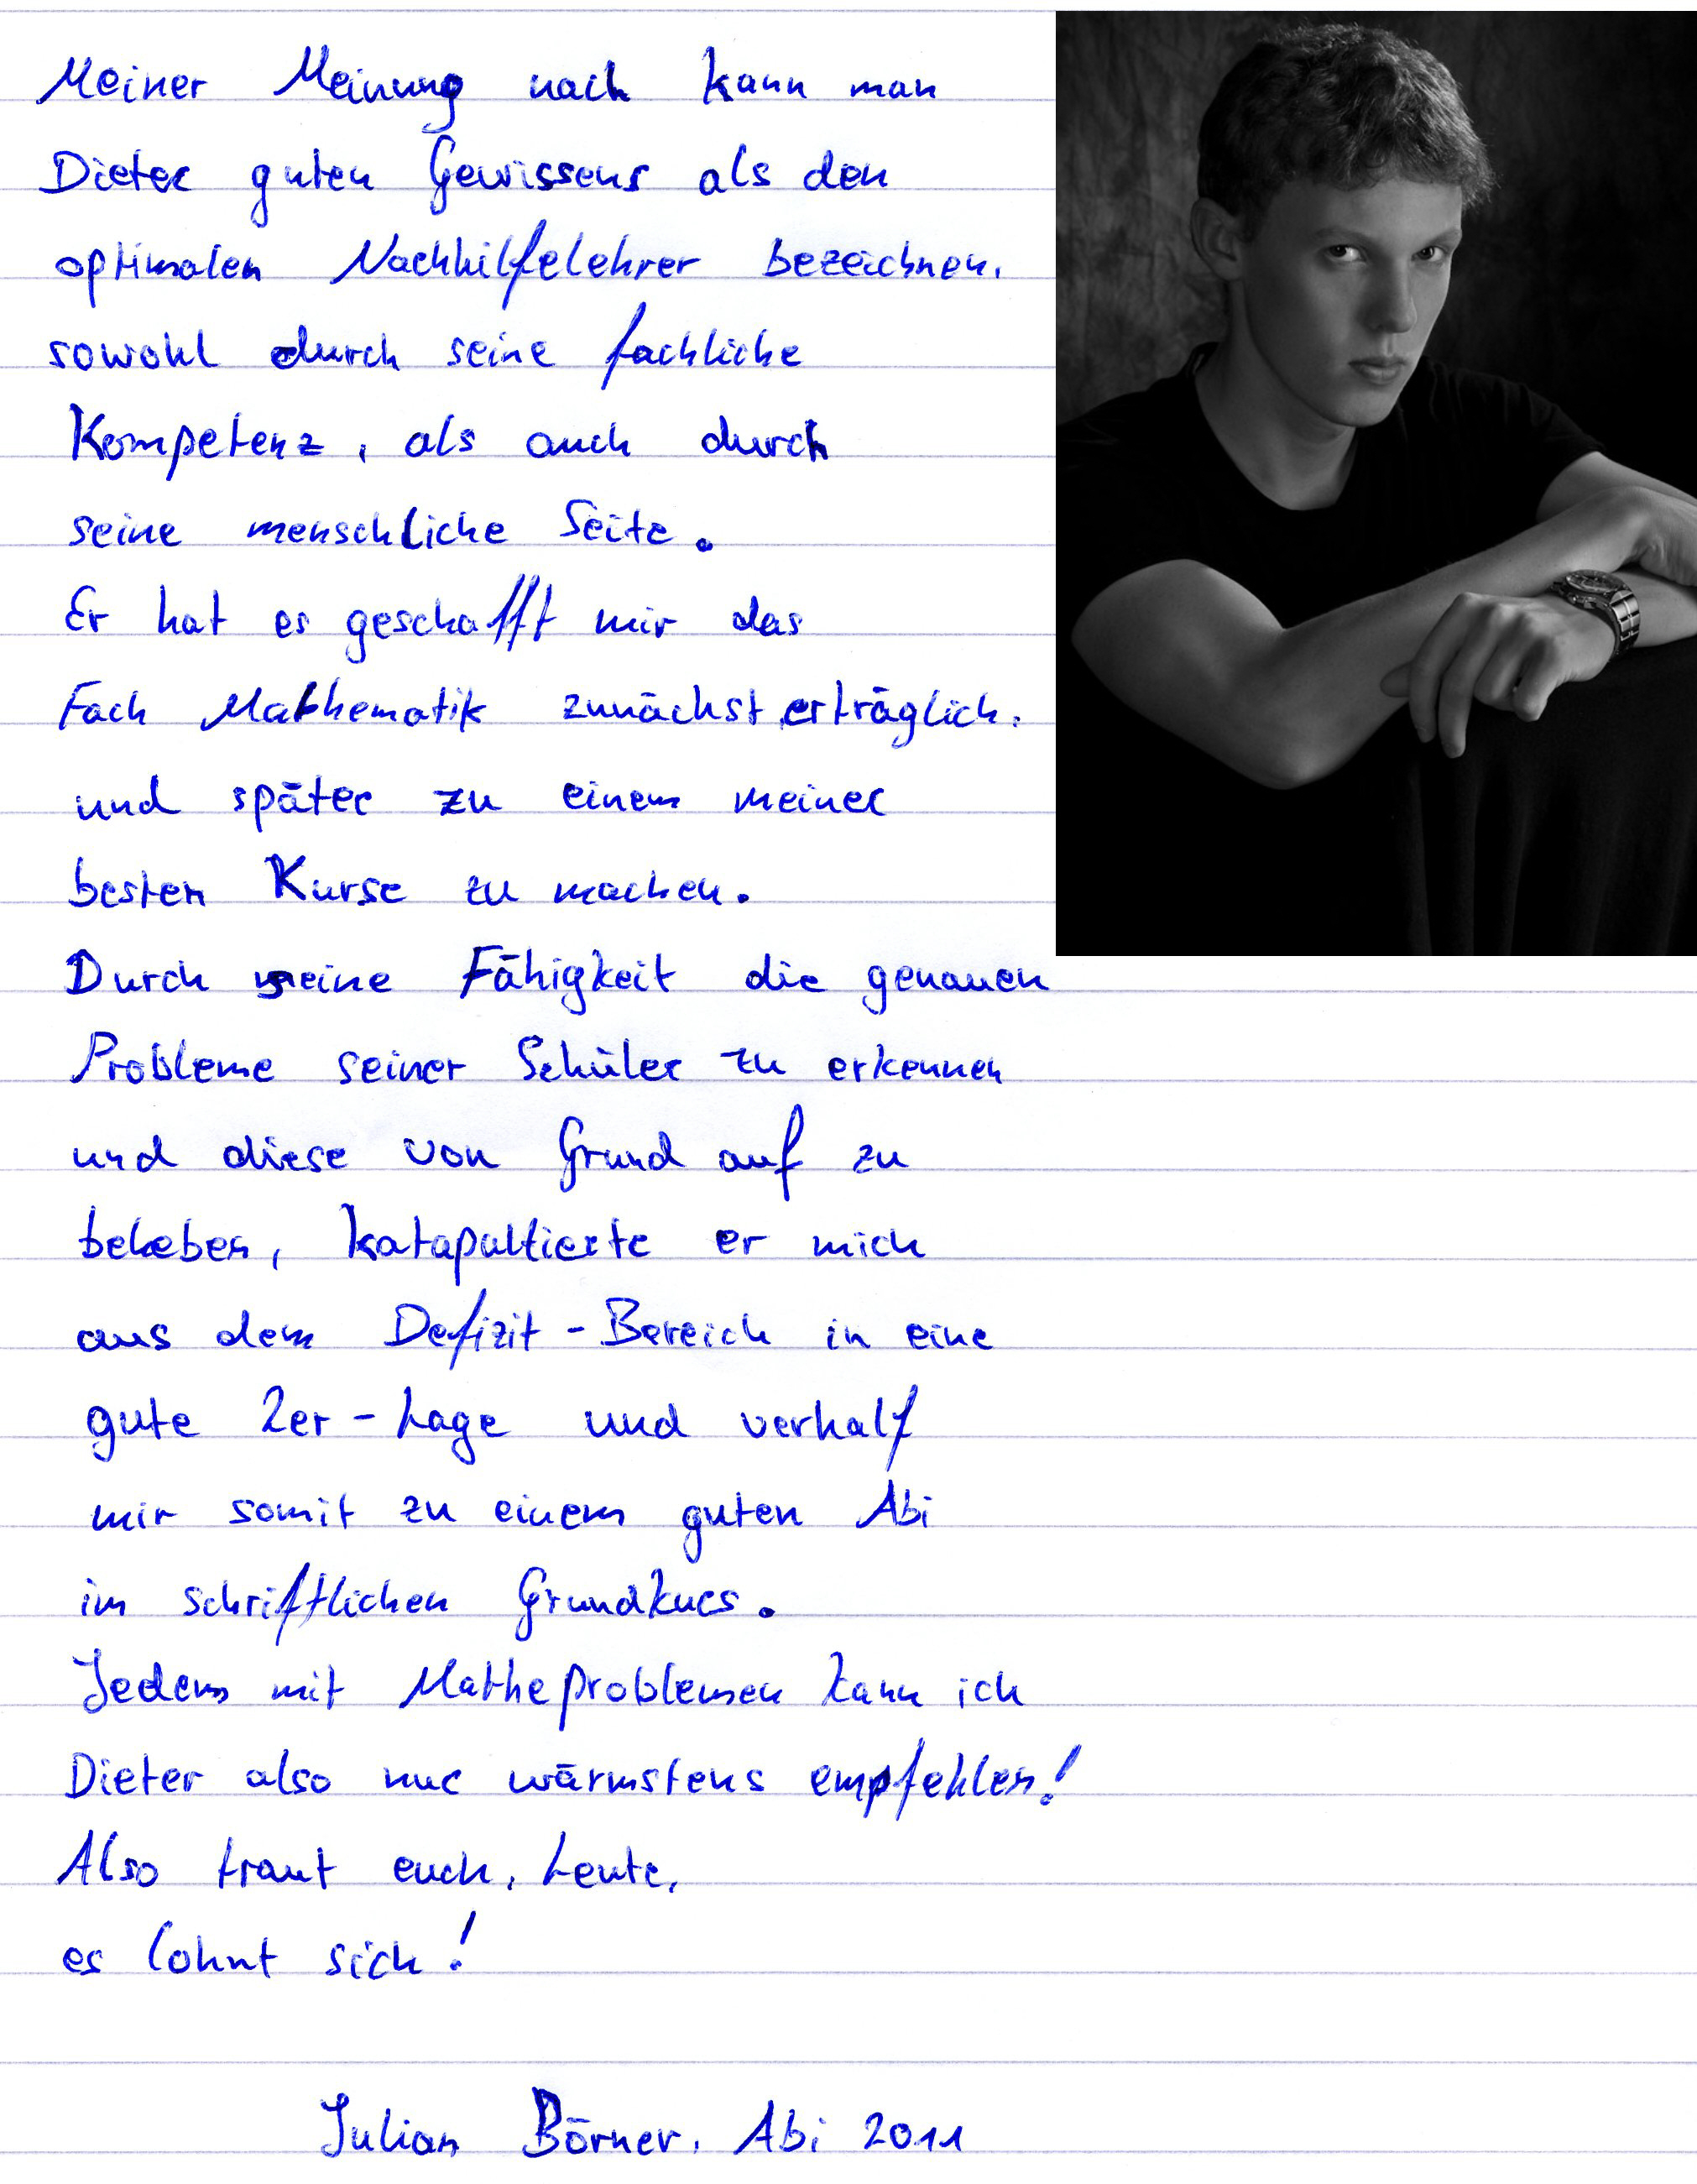 Meiner Meinung nach kann man
Dieter guten Gewissens als den
optimalen Nachhilfelehrer bezeichnen,
sowohl durch seine fachliche
Kompetenz, als auch durch
seine menschliche Seite.
Er hat es geschafft mir das
Fach Mathematik zunächst erträglich,
und später zu einem meiner
besten Kurse zu machen.
Durch seine Fähigkeit die genauen
Probleme seiner Schüler zu erkennen
und diese von Grund auf zu
beheben, katapultierte er mich
aus dem Defizit-Bereich in eine
gute 2er-Lage und verhalf
mir somit zu einem guten Abi
im schriftlichen Grundkurs.
Jedem mit Matheproblemen kann ich
Dieter also nur wärmstens empfehlen!
Also traut euch, Leute,
es lohnt sich!
Julian Börner, Abi 2011